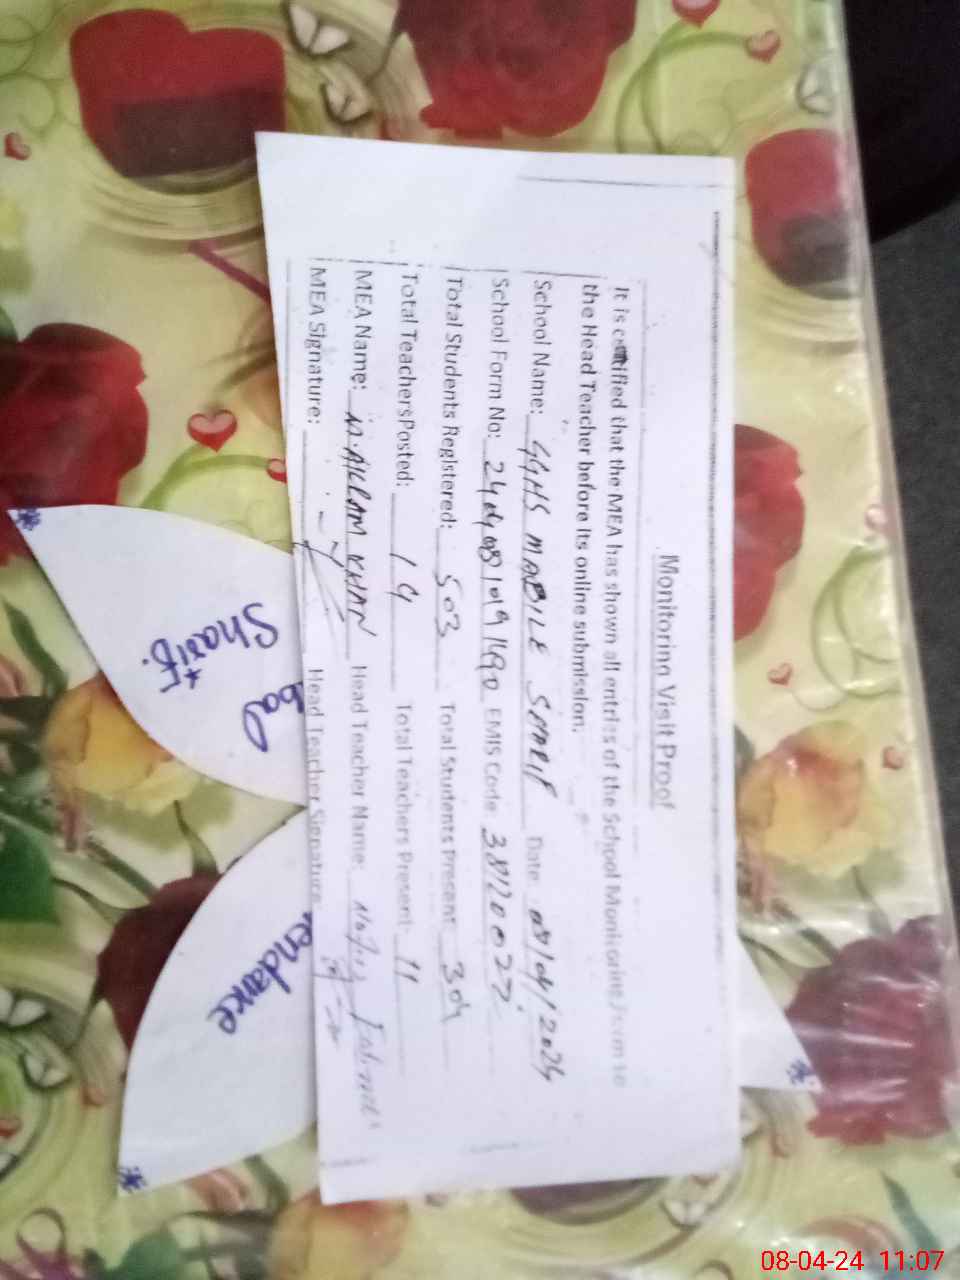 Monitoring Visit Proof
It is certified that the MEA has shown all entries of the School Monitoring Form to
the Head Teacher before its online submission.
School Name: GGHS MABILE SHARIF Date: 08/04/2024
School Form No: EMIS Code: 38120022
Total Students Registered: 503 Total Students Present: 304
Total Teachers Posted: 14 Total Teachers Present: 11
MEA Name: M. AKRAM KHAN Head Teacher Name:
MEA Signature: Head Teacher Signature
Sharif.
endance
08-04-24 11:07